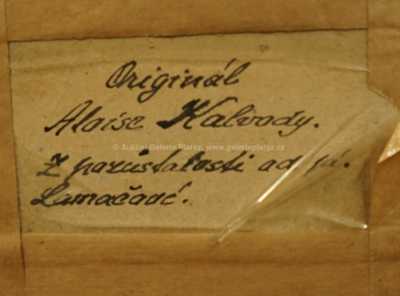 Originál
Aloise Kalvody.
Z pozůstalosti ad. pí.
Lamačové.
© Aukční Galerie Platýz, www.galerieplatyz.cz